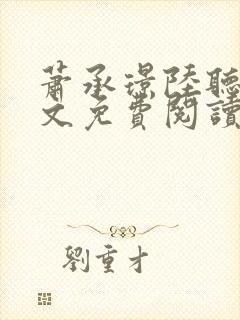 蕭承璟陸聽
文免費閱讀
劉重才